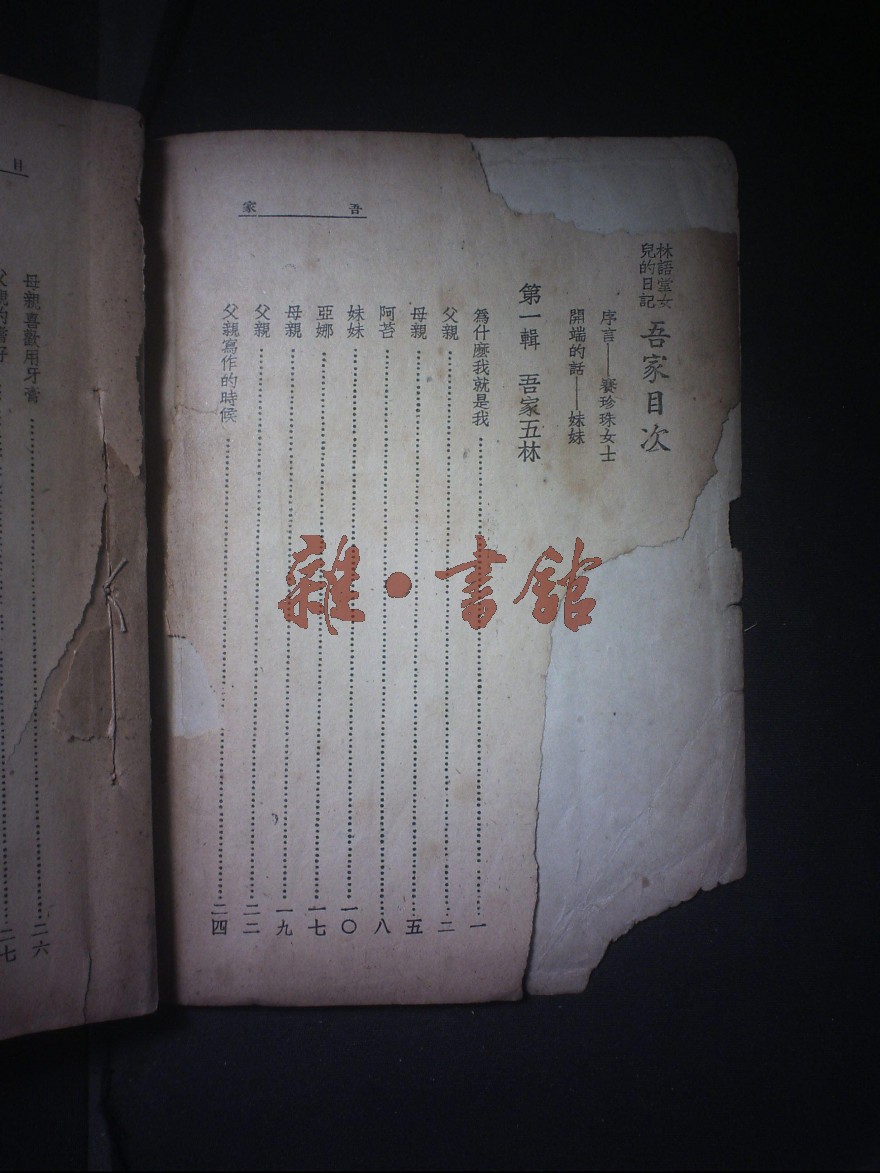 吾家
林語堂女
兒的日記
吾家目次
序言——賽珍珠女士
開端的話——妹妹
第一輯 吾家五林
爲什麼我就是我……一
父親……三
母親……五
阿苔……八
妹妹……一〇
亞娜……一七
母親……一九
父親……二二
父親寫作的時候……二四
目
母親喜歡用牙膏……二六
父親的嗜好……二七
雜·書館